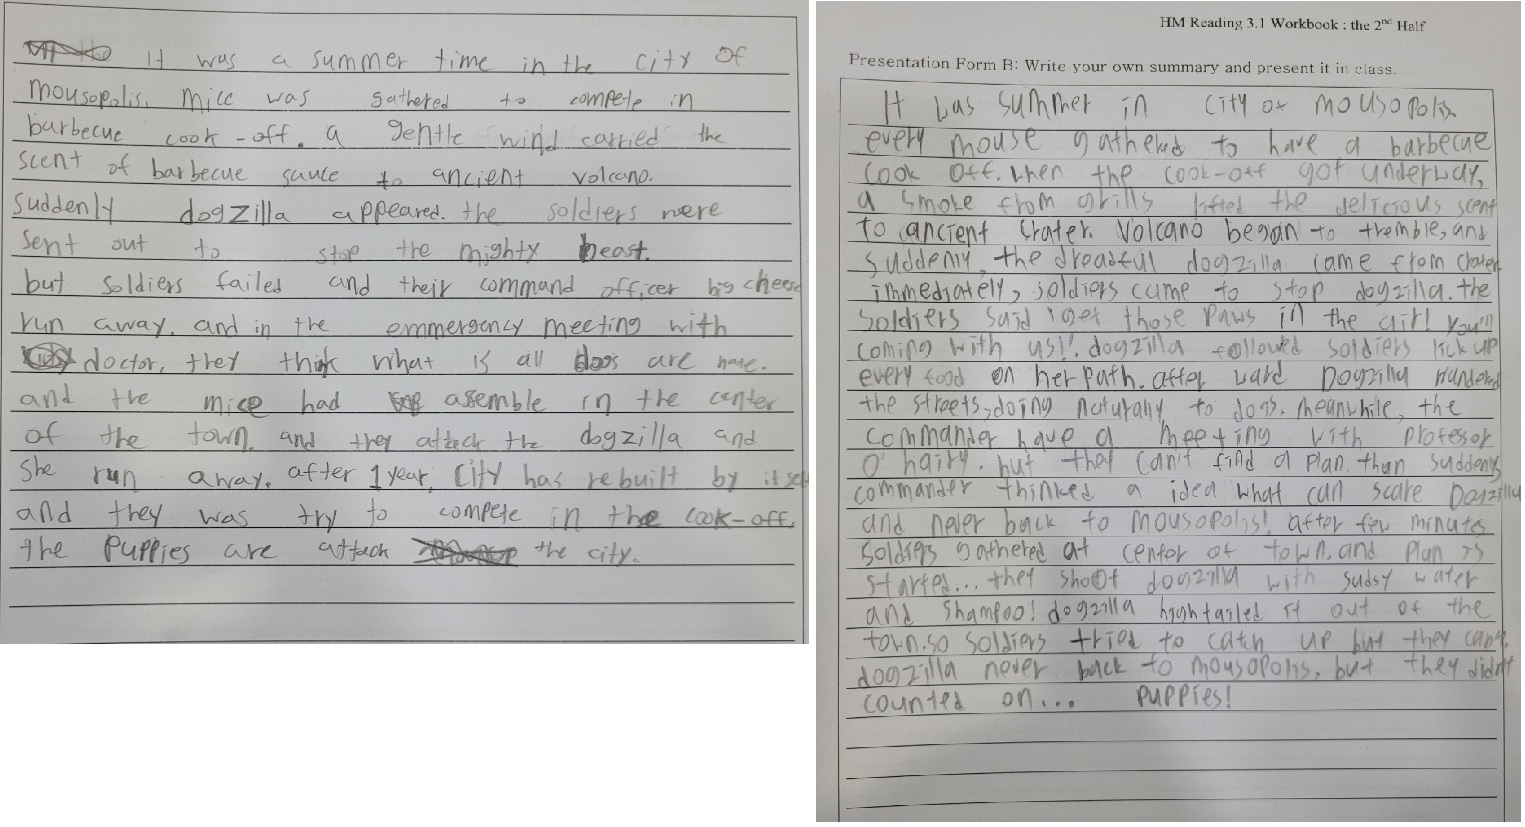 It was a summer time in the city of
mousopolis. mice was gathered to compete in
barbecue cook-off. a gentle wind carried the
scent of barbecue sauce to ancient volcano.
suddenly dogzilla appeared. the soldiers were
sent out to stop the mighty beast.
but soldiers failed and their command officer big cheese
run away. and in the emmergency meeting with
doctor, they think what is all dogs are hate.
and the mice had asemble in the center
of the town. and they attack the dogzilla and
she run away. after 1 year, city has rebuilt by it self
and they was try to compete in the cook-off.
the puppies are attack the city.
HM Reading 3.1 Workbook : the 2nd Half
Presentation Form B: Write your own summary and present it in class.
It was summer in city of mousopolis.
every mouse gathered to have a barbecue
cook off. when the cook-off got underway,
a smoke from grills lifted the delicious scent
to ancient crater. Volcano began to tremble, and
suddenly, the dreadful dogzilla came from crater.
immediately, soldiers came to stop dogzilla. the
soldiers said "get those paws in the air! you'll
coming with us!". dogzilla followed soldiers lick up
every food on her path. after ward Dogzilla wandered
the streets, doing naturally to dogs. meanwhile, the
commander have a meeting with profesor
O'hairy. but they can't find a plan. than suddenly
commander thinked a idea what can scare Dogzilla
and never back to mousopolis! after few minutes
soldiers gathered at center of town. and plan is
started... they shoot dogzilla with sudsy water
and shampoo! dogzilla hightailed it out of the
town. so soldiers tried to catch up but they can't.
dogzilla never back to mousopolis, but they didn't
counted on... puppies!